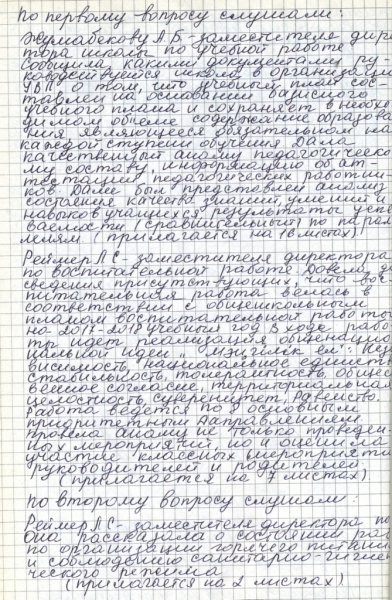 По первому вопросу слушали:
Жумабекову А.Б - заместителя дирек
тора школы по учебной работе
Сообщила какими документами ру-
ководствуется школа в организации
УВП о том, что учебный план сос-
тавлен на основании базисного
учебного плана и сохраняет в необхо
димом объеме содержание образова
ния являющееся обязательном на
каждой ступени обучения Дала
качественный анализ педагогическо
му составу, информацию об ат-
тестации педагогических работни-
ков. Далее был представлен анализ
состояния качества знаний, умений и
навыков учащихся, результаты успе
ваемости (сравнительный) по парал
лелям. (прилагается на 16 листах)
Реймер ЛС - заместителя директора
по воспитательной работе. Довела до
сведения присутствующих, что вос-
питательная работа велась в
соответствии с общешкольным
планом воспитательной работы
на 2017-2018 учебный год В ходе рабо
ты идет реализация общенацио
нальной идеи „Мәңгілік ел": Неза
висимость, национальное единство
стабильность, толерантность, общес
венное согласие, территориальная
целостность, суверенитет, равенство.
Работа ведется по 8 основным
приоритетным направлениям
провела анализ не только проведен-
ных мероприятий, но и оценила
участие классных мероприяти
руководителей и родителей
(прилагается на 7 листах)
По второму вопросу слушали:
Реймер ЛС - заместителя директора по
Она рассказала о состоянии раб
по организации горячего питани
и соблюдению санитарно-гигиен
ческого режима
(прилагается на 2 листах)